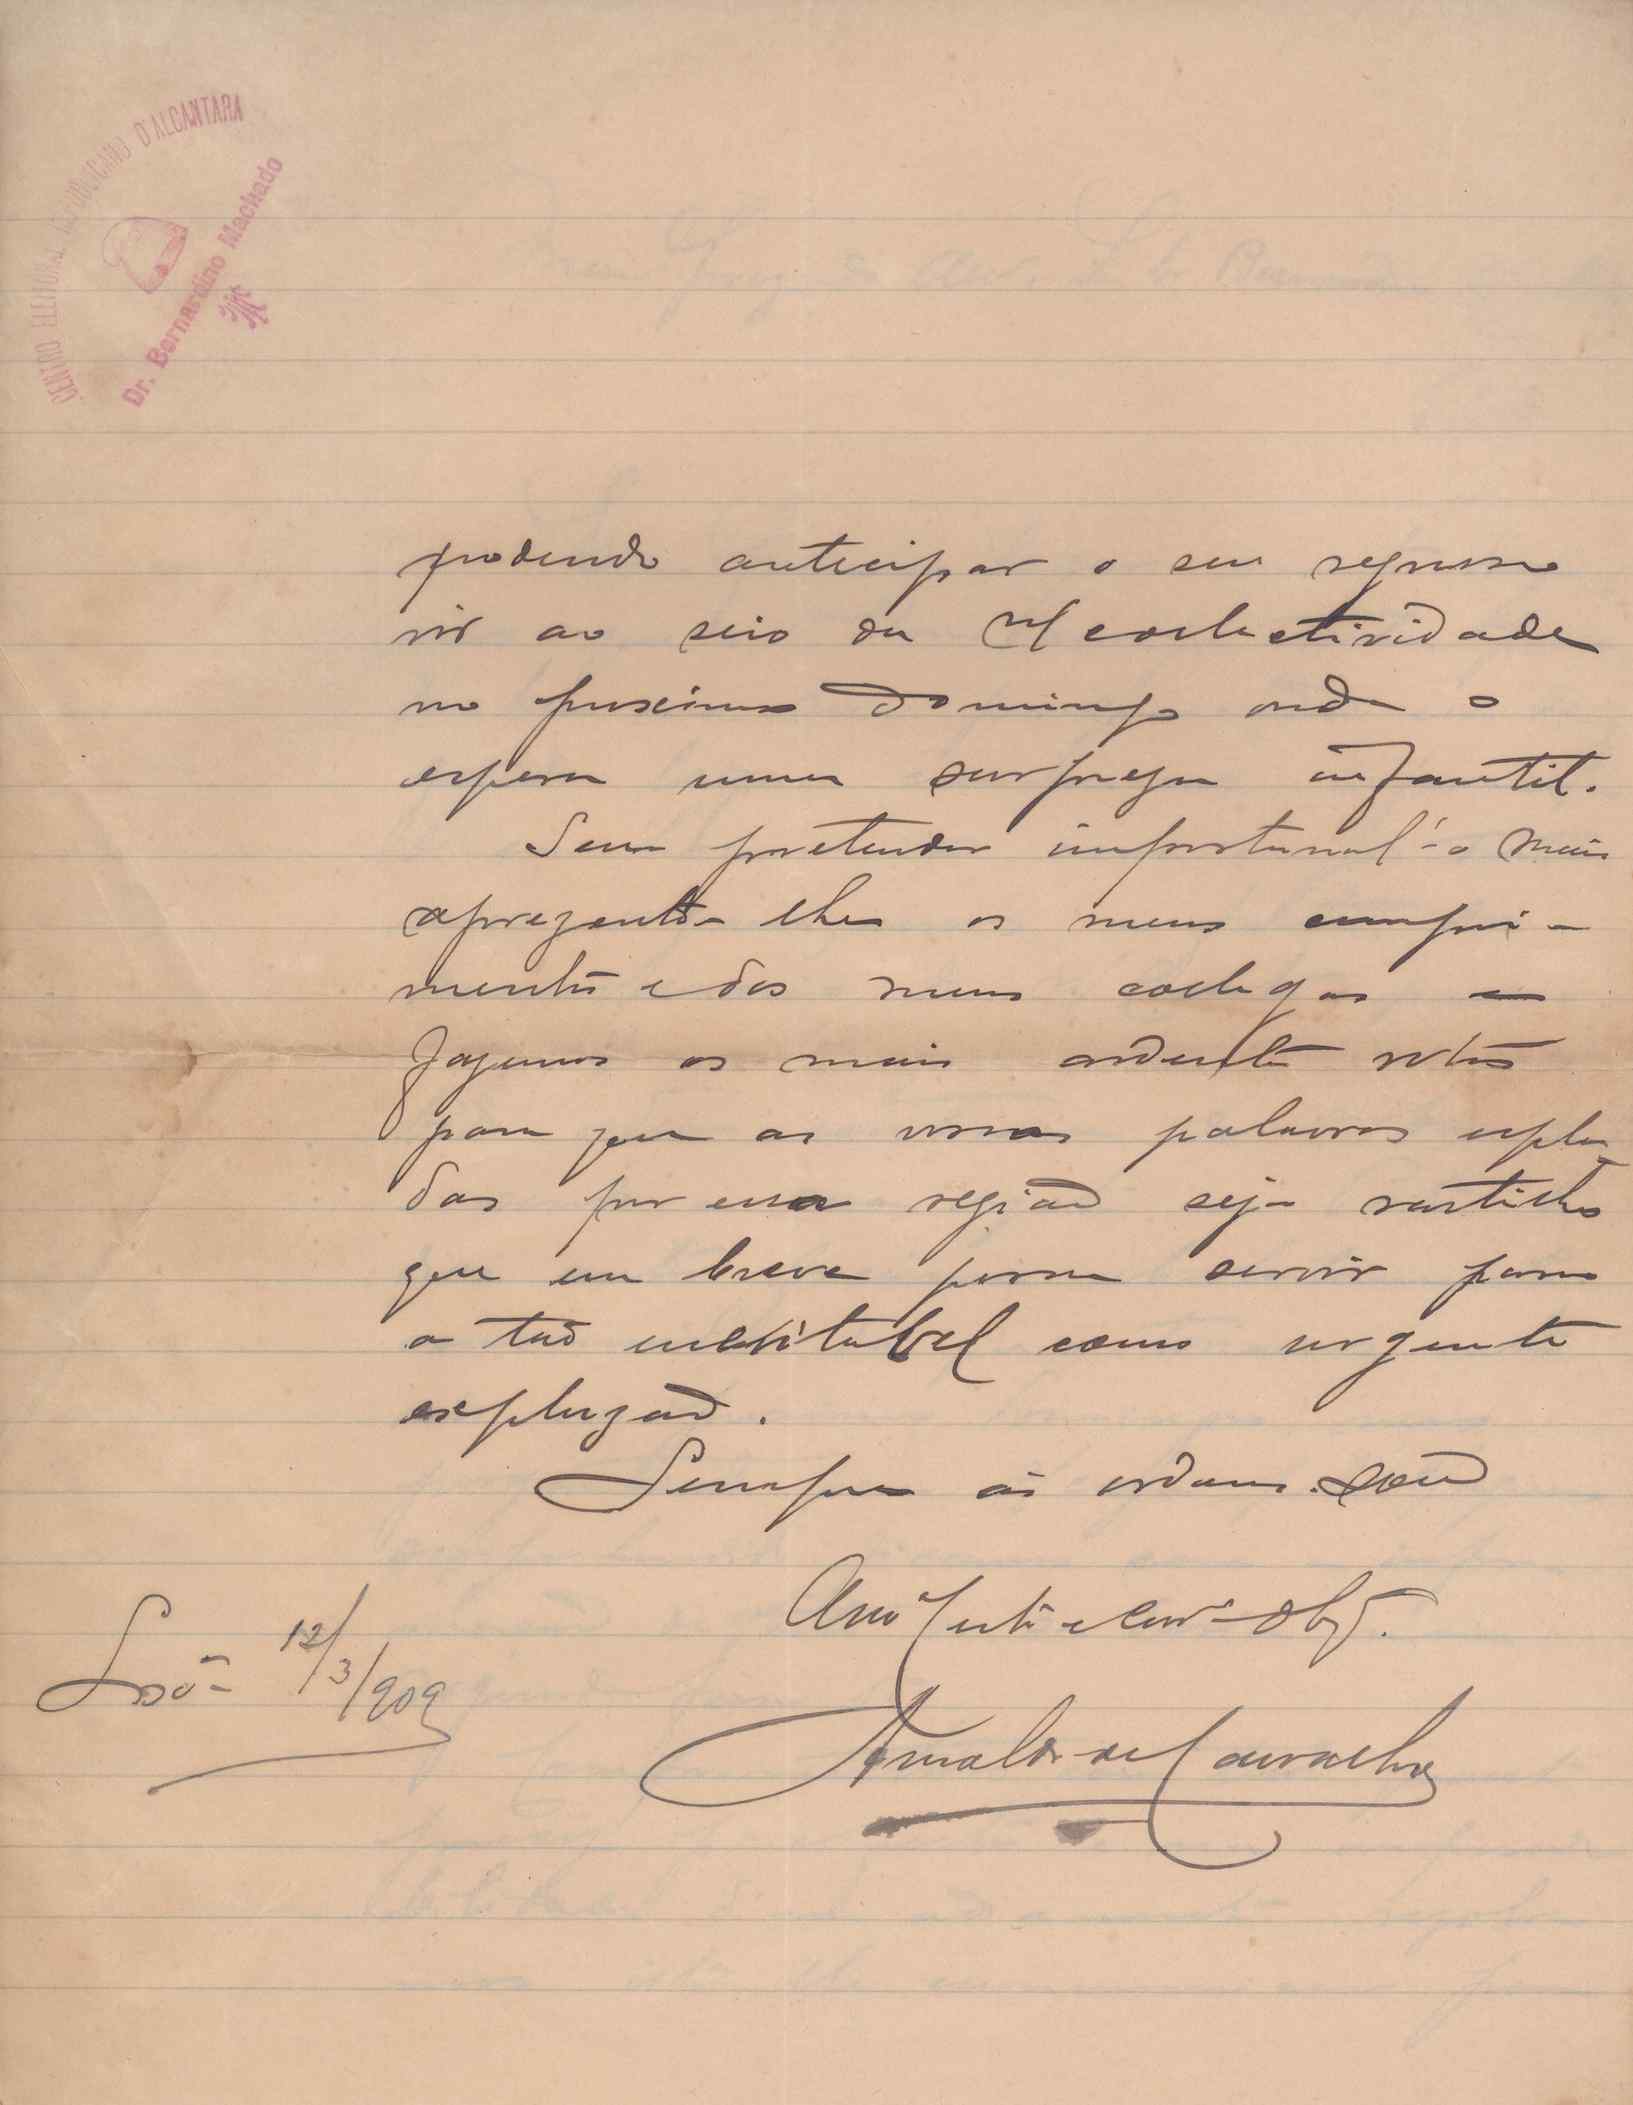 CENTRO ELEITORAL REPUBLICANO D'ALCANTARA
Dr. Bernardino Machado
podendo anticipar o seu regresso
vir ao seio da collectividade
no proximo Domingo onde o
espera uma surpreza infantil.
Sem pretender importunal'-o mais
aprezento-lhe os meus cumpri-
mentos e dos meus collegas e
fazemos os mais ardentes votos
para que as vossas palavras espalha-
das por essa região seja rastilho
que em breve possa servir para
a tão inevitavel como urgente
explozão.
Sempre ás ordens. Sou
Amº Certº e Corrº Obgº.
Lxª 12/3/909
Arnaldo de Carvalho